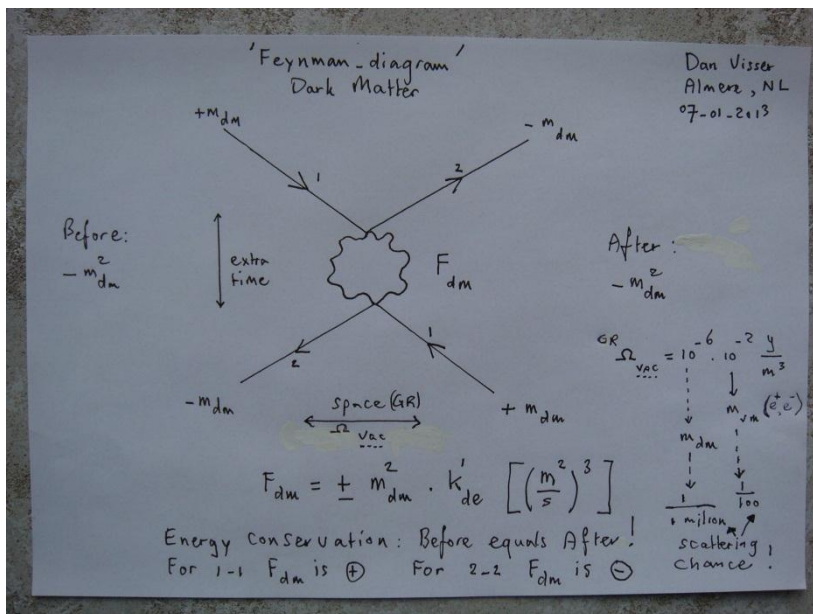 'Feynman-diagram'
Dark Matter
Dan Visser
Almere, NL
07-01-2013
+m_dm
- m_dm
1
2
Before:
- m²_dm
extra
time
F_dm
After:
- m²_dm
2
1
- m_dm
+ m_dm
space (GR)
Ω_vac
GR Ω_VAC = 10^-6 . 10^-2 y/m³
m_vm (e⁺, e⁻)
m_dm
1/1 milion
1/100
scattering
chance!
F_dm = ± m²_dm . k'_de [(m²/s)³]
Energy conservation: Before equals After!
For 1-1 F_dm is ⊕ For 2-2 F_dm is ⊖